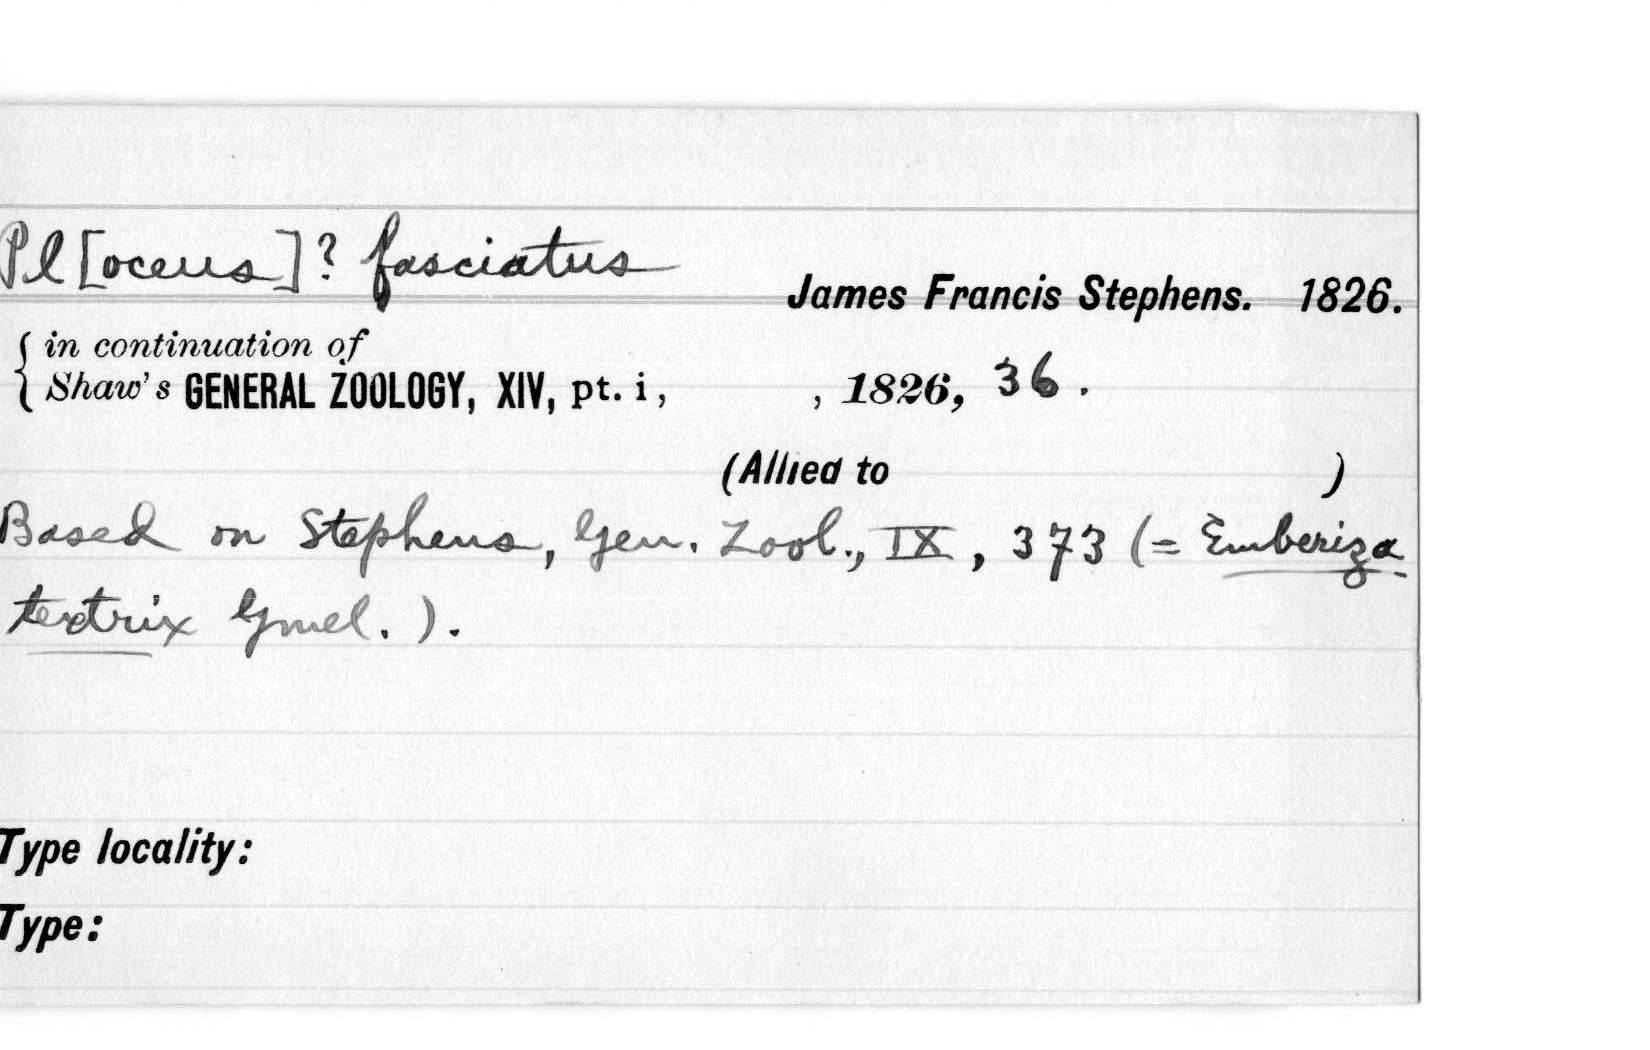 Pl[oceus]? fasciatus
James Francis Stephens. 1826.
{ in continuation of
Shaw's GENERAL ZOOLOGY, XIV, pt. i, , 1826, 36.
(Allied to )
Based on Stephens, Gen. Zool., IX, 373 (= Emberiza
textrix Gmel.).
Type locality:
Type: